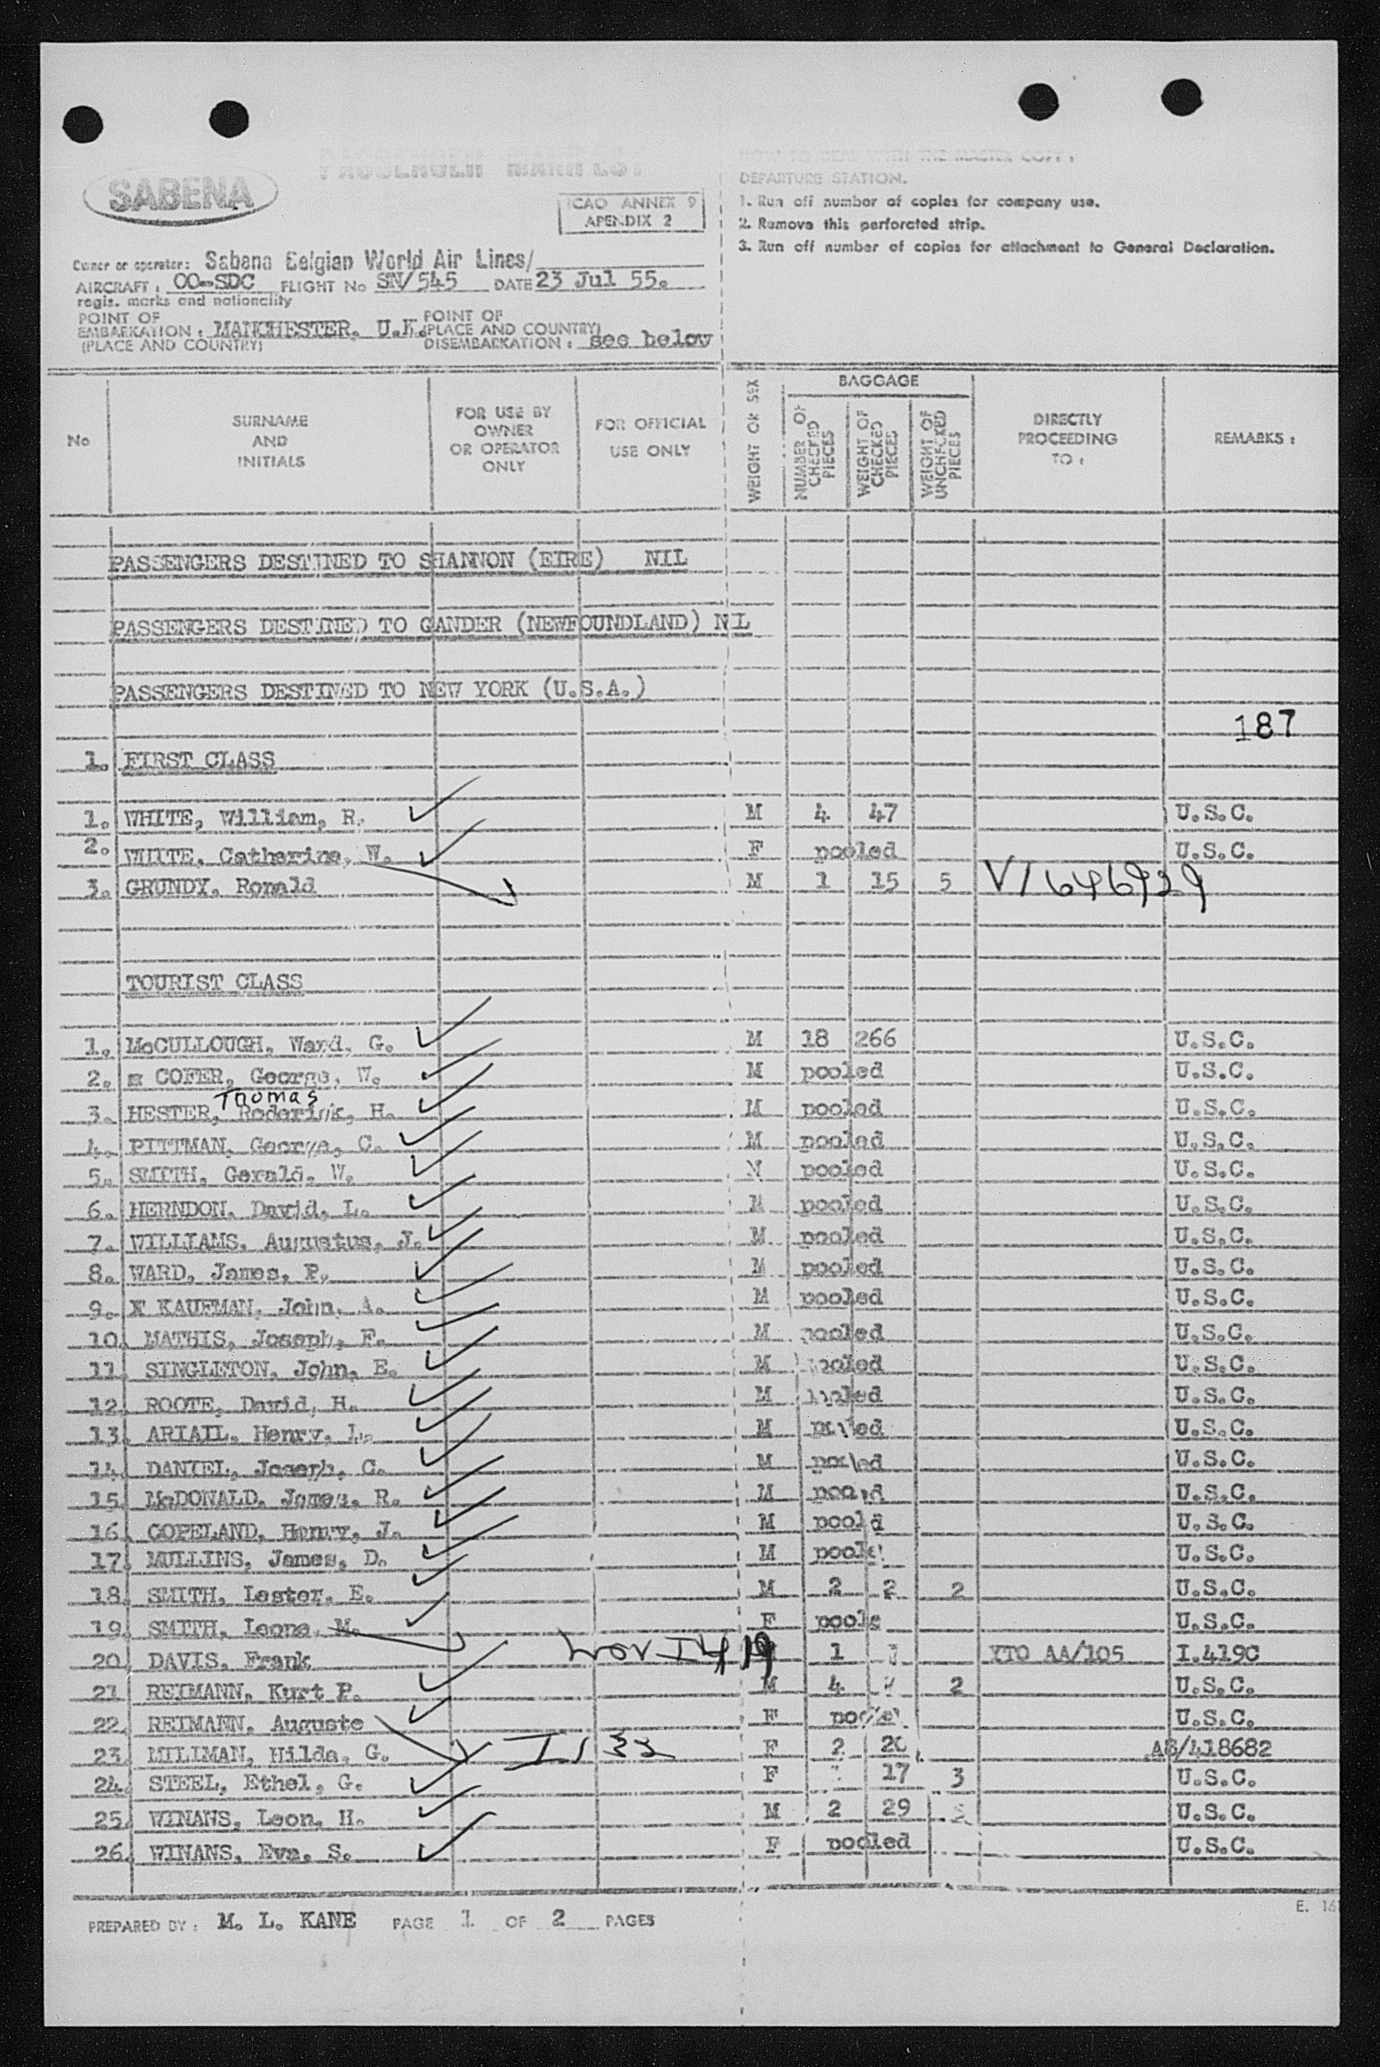 PASSENGER MANIFEST
HOW TO DEAL WITH THE MASTER COPY :
SABENA
ICAO ANNEX 9
APENDIX 2
DEPARTURE STATION.
1. Run off number of copies for company use.
2. Remove this perforated strip.
3. Run off number of copies for attachment to General Declaration.
Owner or operator: Sabena Belgian World Air Lines/
AIRCRAFT : OO-SDC FLIGHT No SN/545 DATE 23 Jul 55.
regis. marks and nationality
POINT OF EMBARKATION : MANCHESTER, U.K. (PLACE AND COUNTRY)
POINT OF (PLACE AND COUNTRY) DISEMBARKATION : see below
No
SURNAME AND INITIALS
FOR USE BY OWNER OR OPERATOR ONLY
FOR OFFICIAL USE ONLY
WEIGHT OR SEX
BAGGAGE
NUMBER OF CHECKED PIECES
WEIGHT OF CHECKED PIECES
WEIGHT OF UNCHECKED PIECES
DIRECTLY PROCEEDING TO :
REMARKS :
PASSENGERS DESTINED TO SHANNON (EIRE) NIL
PASSENGERS DESTINED TO GANDER (NEWFOUNDLAND) NIL
PASSENGERS DESTINED TO NEW YORK (U.S.A.)
187
1. FIRST CLASS
1. WHITE, William, R. M 4 47 U.S.C.
2. WHITE, Catherine, W. F pooled U.S.C.
3. GRUNDY, Ronald M 1 15 5 V/646929
TOURIST CLASS
1. McCULLOUGH, Ward, G. M 18 266 U.S.C.
2. COFER, George, W. M pooled U.S.C.
Thomas
3. HESTER, Roderick, H. M pooled U.S.C.
4. PITTMAN, George, C. M pooled U.S.C.
5. SMITH, Gerald, W. M pooled U.S.C.
6. HERNDON, David, L. M pooled U.S.C.
7. WILLIAMS, Augustus, J. M pooled U.S.C.
8. WARD, James, P. M pooled U.S.C.
9. X KAUFMAN, John, A. M pooled U.S.C.
10. MATHIS, Joseph, F. M pooled U.S.C.
11. SINGLETON, John, E. M pooled U.S.C.
12. ROOTE, David, H. M pooled U.S.C.
13. ARIAIL, Henry, L. M pooled U.S.C.
14. DANIEL, Joseph, C. M pooled U.S.C.
15. McDONALD, James, R. M pooled U.S.C.
16. COPELAND, Henry, J. M pooled U.S.C.
17. MULLINS, James, D. M pooled U.S.C.
18. SMITH, Lester, E. M 2 2 2 U.S.C.
19. SMITH, Leona, M. F poole U.S.C.
20. DAVIS, Frank 1 YTO AA/105 I.419C
21. REIMANN, Kurt P. M 4 2 U.S.C.
22. REIMANN, Auguste F pooled U.S.C.
23. MILLMAN, Hilda, G. F 2 20 A8/418682
24. STEEL, Ethel, G. F 17 3 U.S.C.
25. WINANS, Leon, H. M 2 29 U.S.C.
26. WINANS, Eva, S. F pooled U.S.C.
PREPARED BY : M. L. KANE PAGE 1 OF 2 PAGES
E. 16